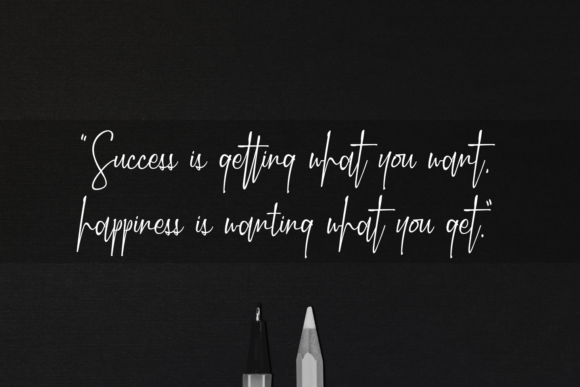 "Success is getting what you want,
happiness is wanting what you get."